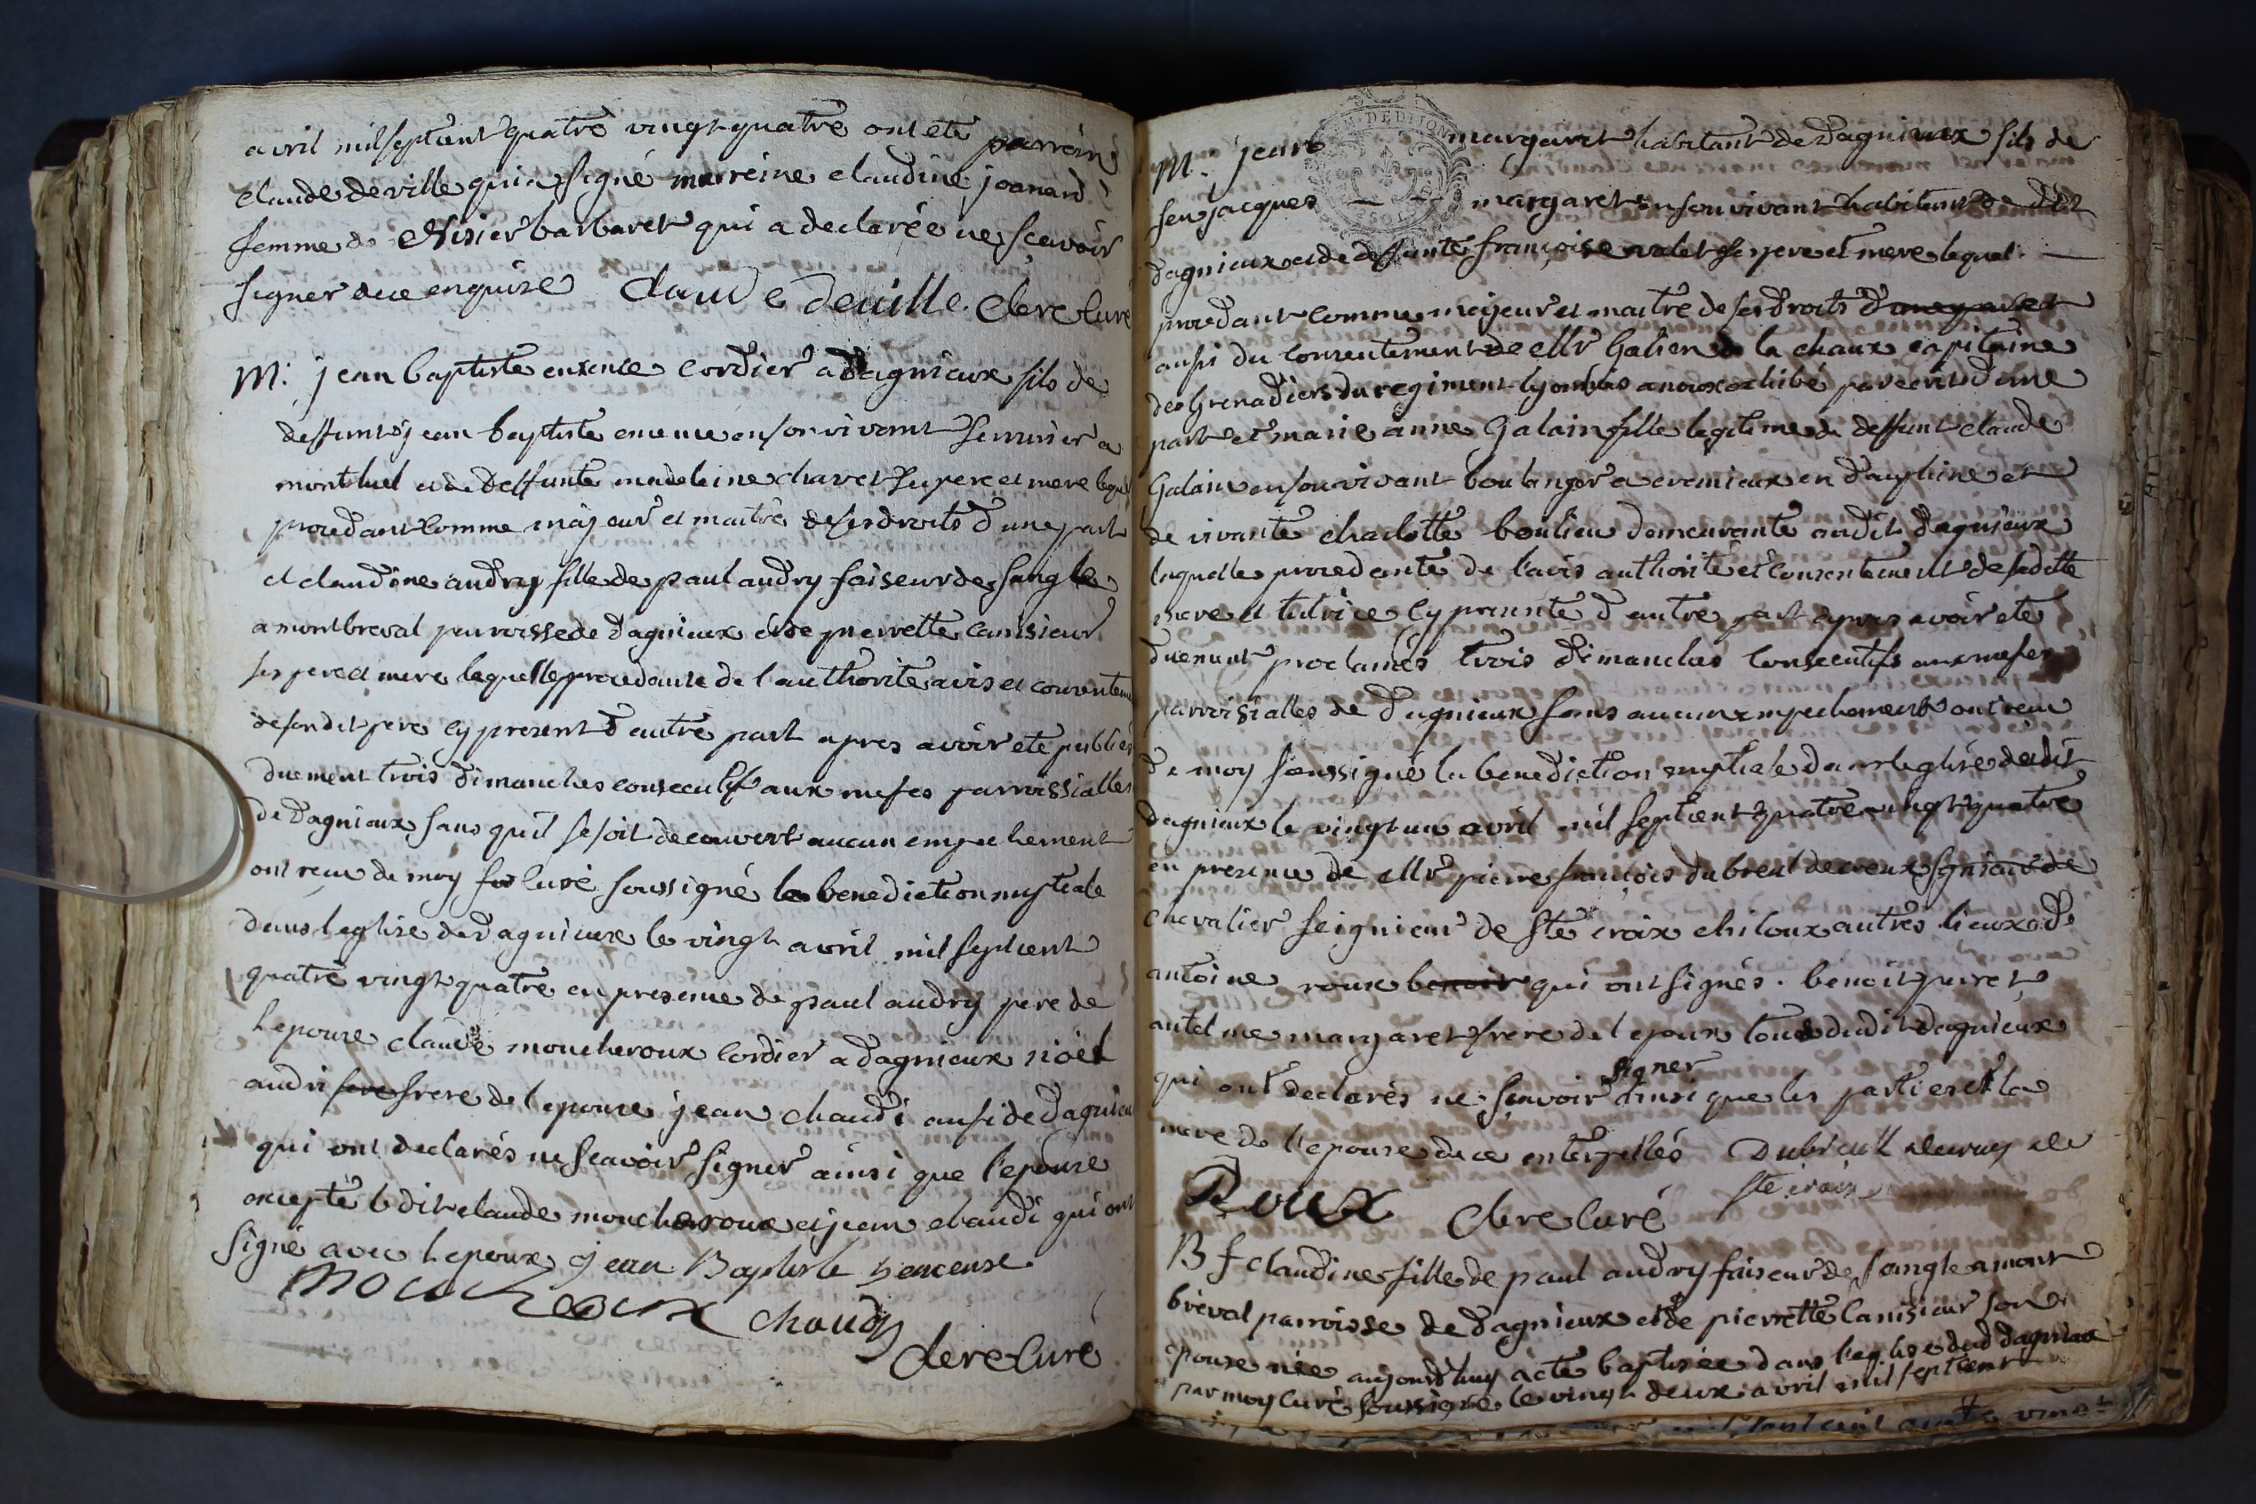 avril mil sept cent quatre vingt quatre ont eté parrein
Claude deville qui a signé marreine claudine joanard
femme de barbaret qui a declarée ne scavoir
signer de ce enquise Claude deville. Clere Curé
M. jean baptiste encence cordier a dagnieux fils de
deffunt jean baptiste en son vivant serrurier a
montluel et de deffunte madeleine chavet ses pere et mere lequel
procedant comme majeur et maitre de ses droits d'une part
et claudine audry fille de paul audry faiseur de sangle
a montbreval parroisse de dagnieux et de pierrette canisieur
ses pere et mere laquelle procedante de l'authorité avis et consentement
de son dit pere cy present d'autre part apres avoir eté publiés
duement trois dimanches consecutifs aux messes parroissialles
de dagnieux sans qu'il se soit decouvert aucun empechement
ont recu de moy curé soussigné la benediction nuptiale
dans leglise de dagnieux le vingt avril mil sept cent
quatre vingt quatre en presence de paul audry pere de
lepouse claude moucheroux cordier a dagnieux noël
audri frere de lepouse jean chaudi aussi de dagnieux
qui ont declarés ne scavoir signer ainsi que l'epouse
excepté ledit claude moucheroux et jean chaudi qui ont
signé avec lepoux jean Baptiste
moucheroux chaudy
Clere Curé
M. jean margaret habitant de dagnieux fils de
feu jacques margaret en son vivant habitant de dit
dagnieux et de deffunte françoise valet ses pere et mere lequel
procedant comme majeur et maitre de ses droits
aussi du consentement de Mr Galien de la chaux capitaine
des Grenadiers du regiment lyonnais a nous exhibé par ecrit d'une
part et marie anne Galain fille legitime de deffunt claude
Galain en son vivant boulanger a cremieux en dauphine et
de vivante charlotte boulieu demeurante audit dagnieux
laquelle procedante de lavis authorité et consentement de sadite
mere et tutrice cy presente d'autre part apres avoir eté
duement proclamés trois dimanches consecutifs aux messes
parroissialles de dagnieux sans aucun empechement ont recu
de moy soussigné la benediction nuptiale dans leglise dudit
dagnieux le vingt un avril mil sept cent quatre vingt quatre
en presence de Mr pierre françois dubreul
chevalier seigneur de Ste croix chiloux autres lieux
antoine roux benoit qui ont signés. benoit perret
antelme margaret frere de lepoux tous dudit dagnieux
qui ont declarés ne scavoir signer ainsi que les parties et la
mere de l'epouse de ce interpellés Dubreul de
Ste croix
Roux Clere Curé
B f claudine fille de paul audry faiseur de sangle a mont
breval parroisse de dagnieux et de pierrette canisieur son
epouse née aujourdhuy a eté baptisée dans l'eglise dud dagnieux
par moy curé soussigné le vingt deux avril mil sept cent